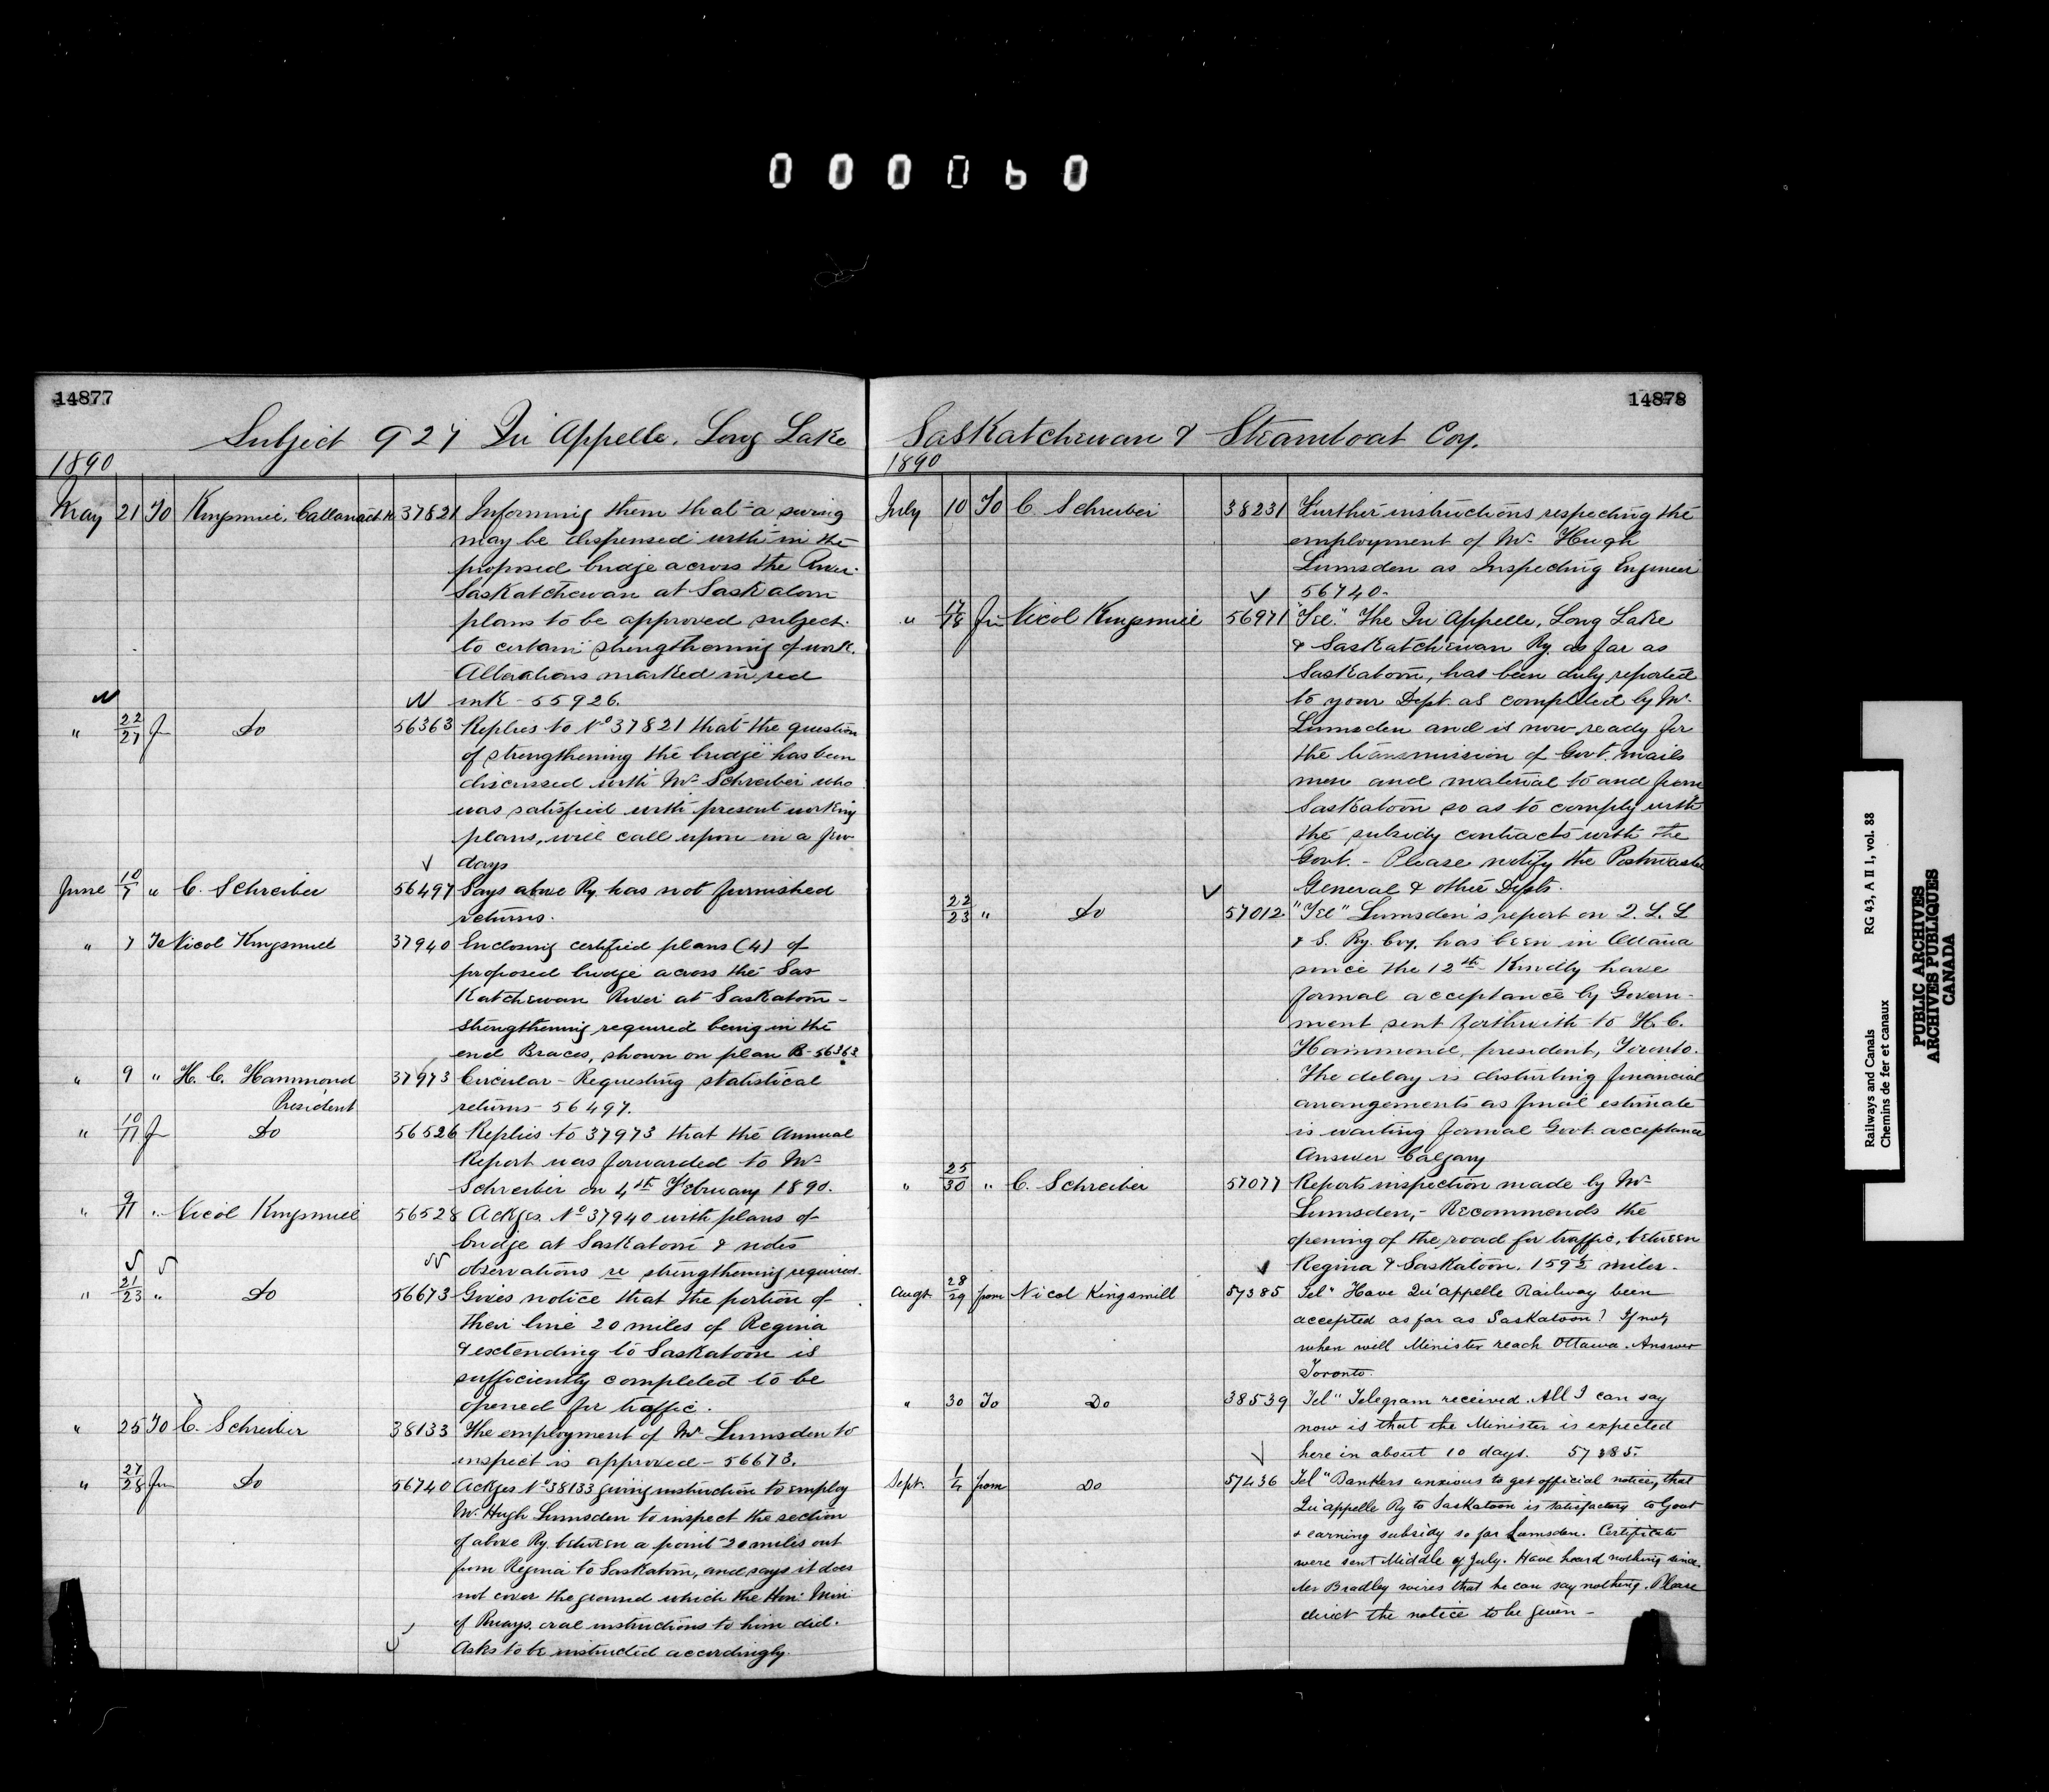 000060
14877
Subject 927 Qu'Appelle, Long Lake
1890
May 21 To Kingsmill, Cattanach 37821 Informing them that a swing
may be dispensed with in the
proposed bridge across the River
Saskatchewan at Saskatoon
plans to be approved subject
to certain strengthening of work.
Alterations marked in red
ink - 55926.
" 22/27 fm Do 56363 Replies to No 37821 that the question
of strengthening the bridge has been
discussed with Mr Schreiber who
was satisfied with present working
plans, will call upon in a few
days
June 10/7 " C. Schreiber 56497 Says above Ry. has not furnished
returns.
" 7 To Nicol Kingsmill 37940 Enclosing certified plans (4) of
proposed bridge across the Sas
Katchewan River at Saskatoon -
strengthening required being in the
end Braces, shown on plan B - 56363
" 9 " H. C. Hammond 37973 Circular - Requesting statistical
President returns - 56497.
" 10/11 fm Do 56526 Replies to 37973 that the Annual
Report was forwarded to Mr
Schreiber on 4th February 1890.
" 9/11 " Nicol Kingsmill 56528 Ackges. No 37940 with plans of
bridge at Saskatoon & notes
observations re strengthening required.
" 21/23 " Do 56673 Gives notice that the portion of
their line 20 miles of Regina
& extending to Saskatoon is
sufficiently completed to be
opened for traffic.
" 25 To C. Schreiber 38133 The employment of Mr Lumsden to
inspect is approved - 56673.
" 27/28 fm Do 56740 Ackges No 38133 giving instruction to employ
Mr Hugh Lumsden to inspect the section
of above Ry. between a point 20 miles out
from Regina to Saskatoon, and says it does
not cover the ground which the Hon: Min:
of Rways. oral instructions to him did.
Asks to be instructed accordingly.
14878
Saskatchewan & Steamboat Coy.
1890
July 10 To C. Schreiber 38231 Further instructions respecting the
employment of Mr Hugh
Lumsden as Inspecting Engineer
56740.
" 17/18 fm Nicol Kingsmill 56971 "Tel." The Qu'Appelle, Long Lake
& Saskatchewan Ry. as far as
Saskatoon, has been duly reported
to your Dept. as completed by Mr
Lumsden and is now ready for
the transmission of Govt. mails
men and material to and from
Saskatoon so as to comply with
the subsidy contracts with the
Govt. - Please notify the Postmaster
General & other Depts.
22/23 " Do 57012 "Tel" Lumsden's report on Q. L. L
& S. Ry. Coy. has been in Ottawa
since the 12th Kindly have
formal acceptance by Govern-
ment sent forthwith to H. C.
Hammond, president, Toronto.
The delay is disturbing financial
arrangements as final estimate
is waiting formal Govt. acceptance
Answer Calgary
" 25/30 " C. Schreiber 57077 Reports inspection made by Mr
Lumsden, - Recommends the
opening of the road for traffic, between
Regina & Saskatoon. 159½ miles.
Augt. 28/29 from Nicol Kingsmill 57385 Tel" Have Qu'appelle Railway been
accepted as far as Saskatoon? If not,
when will Minister reach Ottawa. Answer
Toronto.
" 30 To Do 38539 Tel" Telegram received. All I can say
now is that the Minister is expected
here in about 10 days. 57385.
Sept. 1/4 from Do 57436 Tel" Bankers anxious to get official notice, that
Qu'appelle Ry to Saskatoon is satisfactory to Govt
& earning subsidy so far Lumsden. Certificate
were sent Middle of July. Have heard nothing since.
Mr Bradley wires that he can say nothing. Please
direct the notice to be given -
Railways and Canals RG 43, A II 1, vol. 88
Chemins de fer et canaux
PUBLIC ARCHIVES
ARCHIVES PUBLIQUES
CANADA